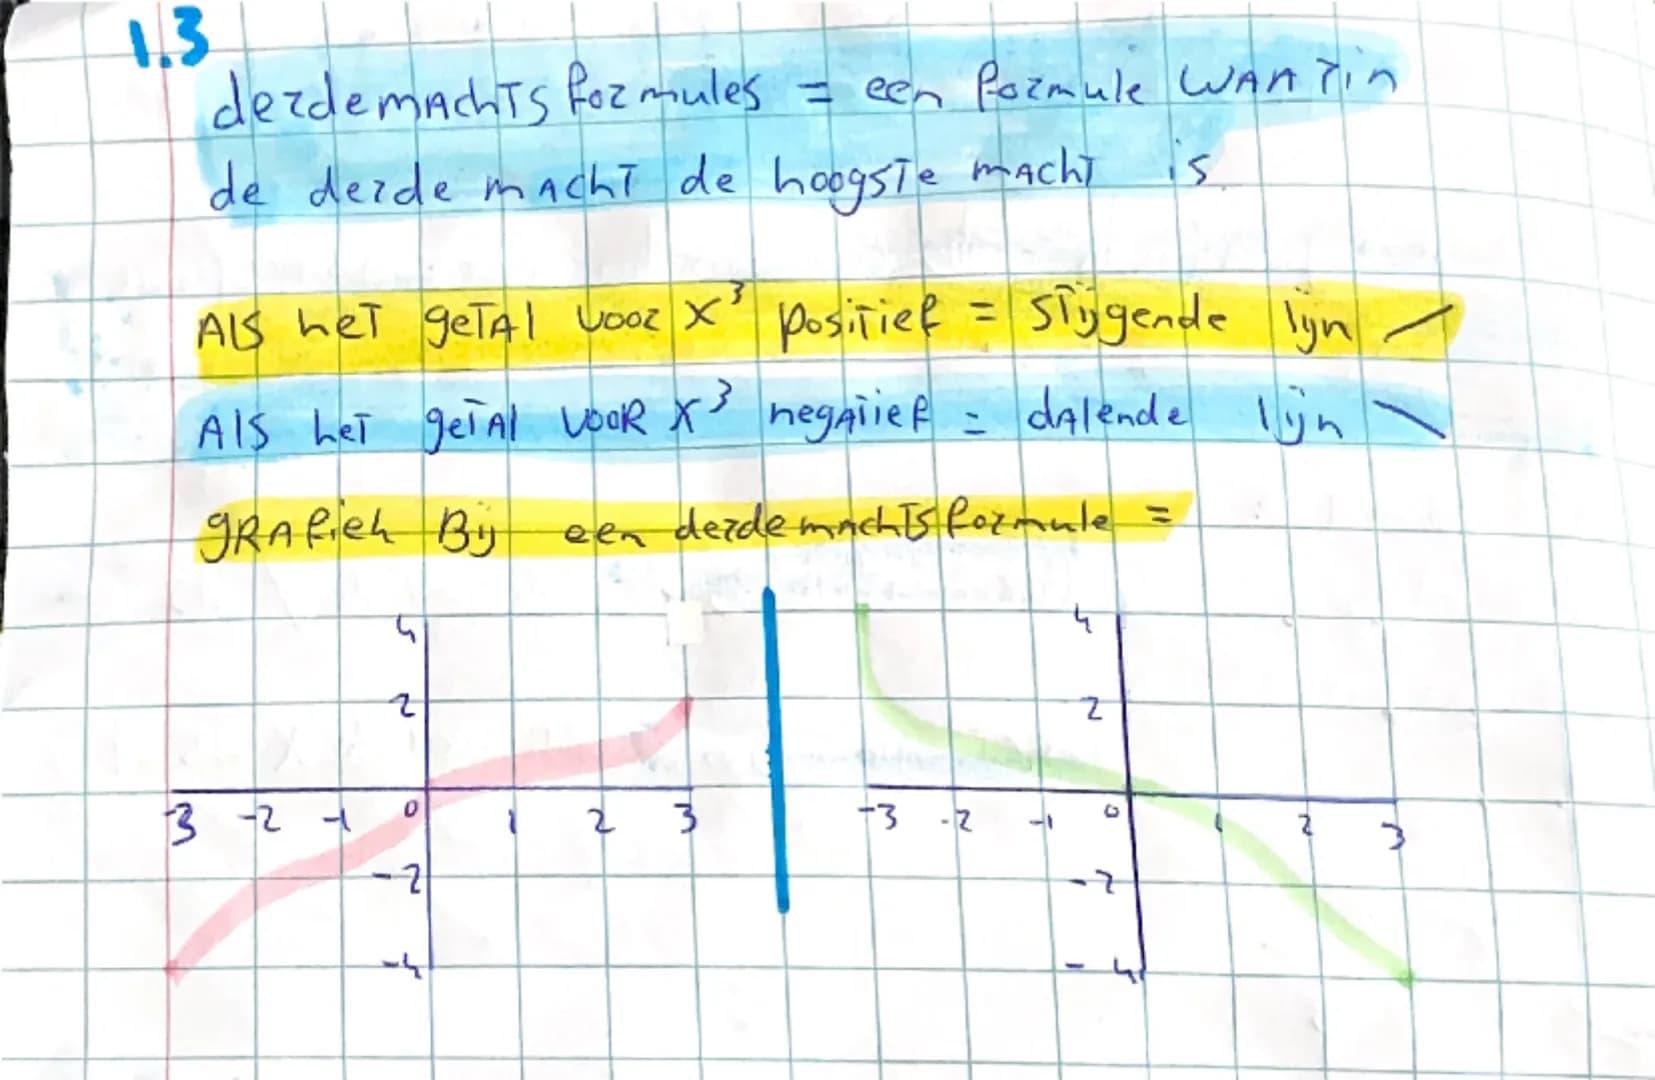 1.3
derdemachts formules = een formule waarin
de derde macht de hoogste macht is
Als het getal voor x³ positief = stijgende lijn
Als het getal voor x³ negatief = dalende lijn
grafiek Bij een derdemachtsformule =
4
2
-3 -2 -1 0 1 2 3
-2
-4
4
2
-3 -2 -1 0 1 2 3
-2
-4